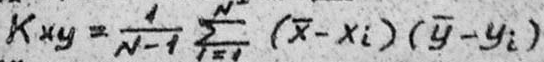 Kxy = 1/(N-1) N∑i=1 (x̅ - xi)(y̅ - yi)